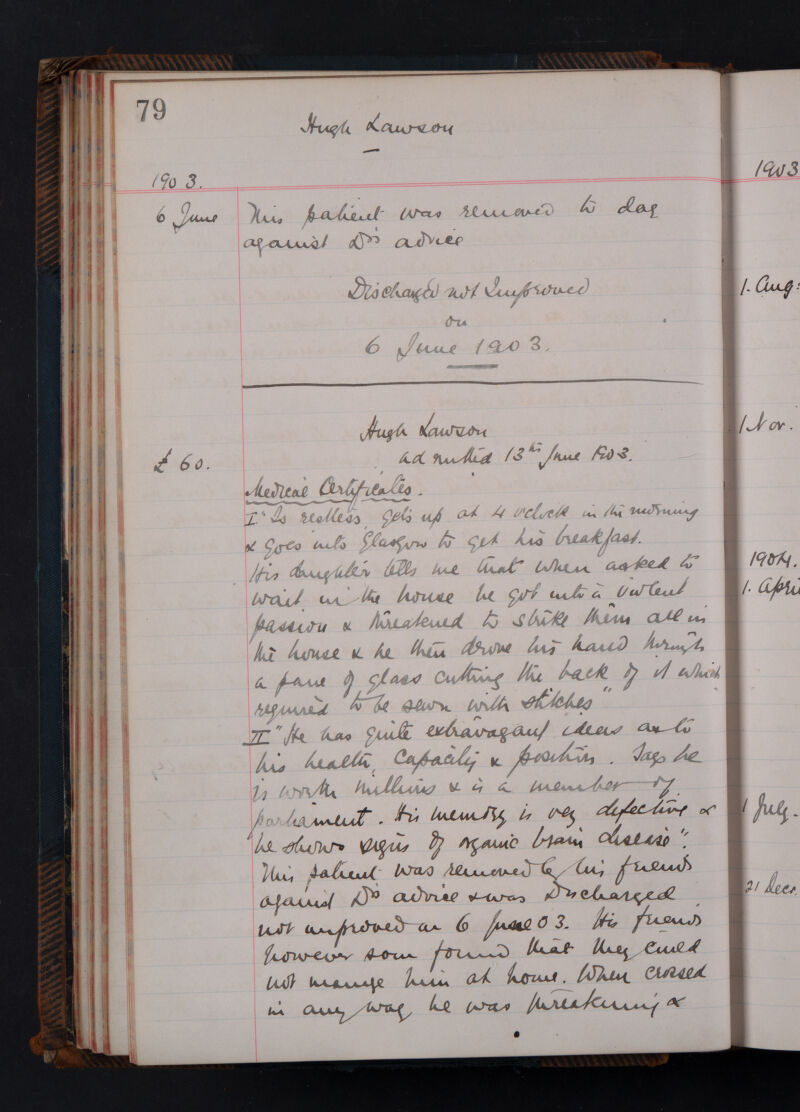 79
Hugh Lawson
1903.
6 June This patient was removed to day
against Drs advice
Discharged not Improved
on
6 June 1903.
Hugh Lawson
£60. admitted 13th June 1903.
Medical Certificates.
I "Is restless, gets up at 4 o'clock in the morning
& goes into Glasgow to get his breakfast.
His daughter tells me that when asked to
wait in the house he got into a violent
passion & threatened to strike them all in
the house & he then drove his hand through
a pane of glass cutting the back of it which
required to be sewn with stitches"
II "He has quite extravagant ideas as to
his health, capacity & position. Says he
is worth millions & is a member of
parliament. His memory is very defective &
he shows signs of organic brain disease".
This patient was removed by his friends
against Drs advice & was Discharged
not improved on 6 June 03. His friends
however soon found that they could
not manage him at home. When crossed
in any way he was threatening &
1903
1. Aug:
1 Nov.
1904.
1. Apri
1 July.
21 Decr.